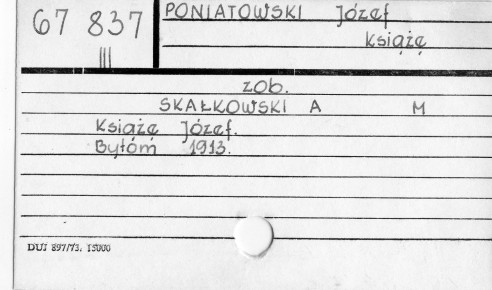 67 837
III
PONIATOWSKI Józef
książę
zob.
SKAŁKOWSKI A M
Książę Józef.
Bytóm 1913.
DUJ 897/73. 15000